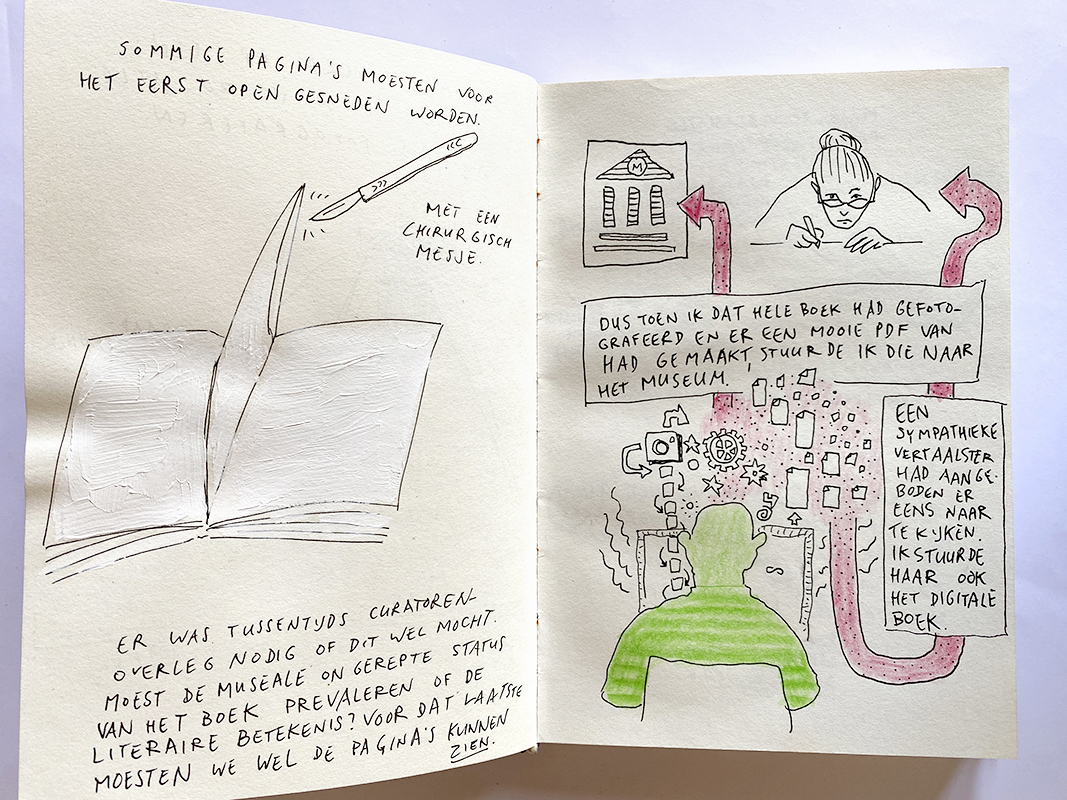 SOMMIGE PAGINA'S MOESTEN VOOR
HET EERST OPEN GESNEDEN WORDEN.
MET EEN
CHIRURGISCH
MESJE.
ER WAS TUSSENTIJDS CURATOREN-
OVERLEG NODIG OF DIT WEL MOCHT.
MOEST DE MUSEALE ONGEREPTE STATUS
VAN HET BOEK PREVALEREN OF DE
LITERAIRE BETEKENIS? VOOR DAT LAATSTE
MOESTEN WE WEL DE PAGINA'S KUNNEN
ZIEN.
M
DUS TOEN IK DAT HELE BOEK HAD GEFOTO-
GRAFEERD EN ER EEN MOOIE PDF VAN
HAD GEMAAKT, STUURDE IK DIE NAAR
HET MUSEUM.
EEN
SYMPATHIEKE
VERTAALSTER
HAD AANGE-
BODEN ER
EENS NAAR
TE KIJKEN.
IK STUURDE
HAAR OOK
HET DIGITALE
BOEK.